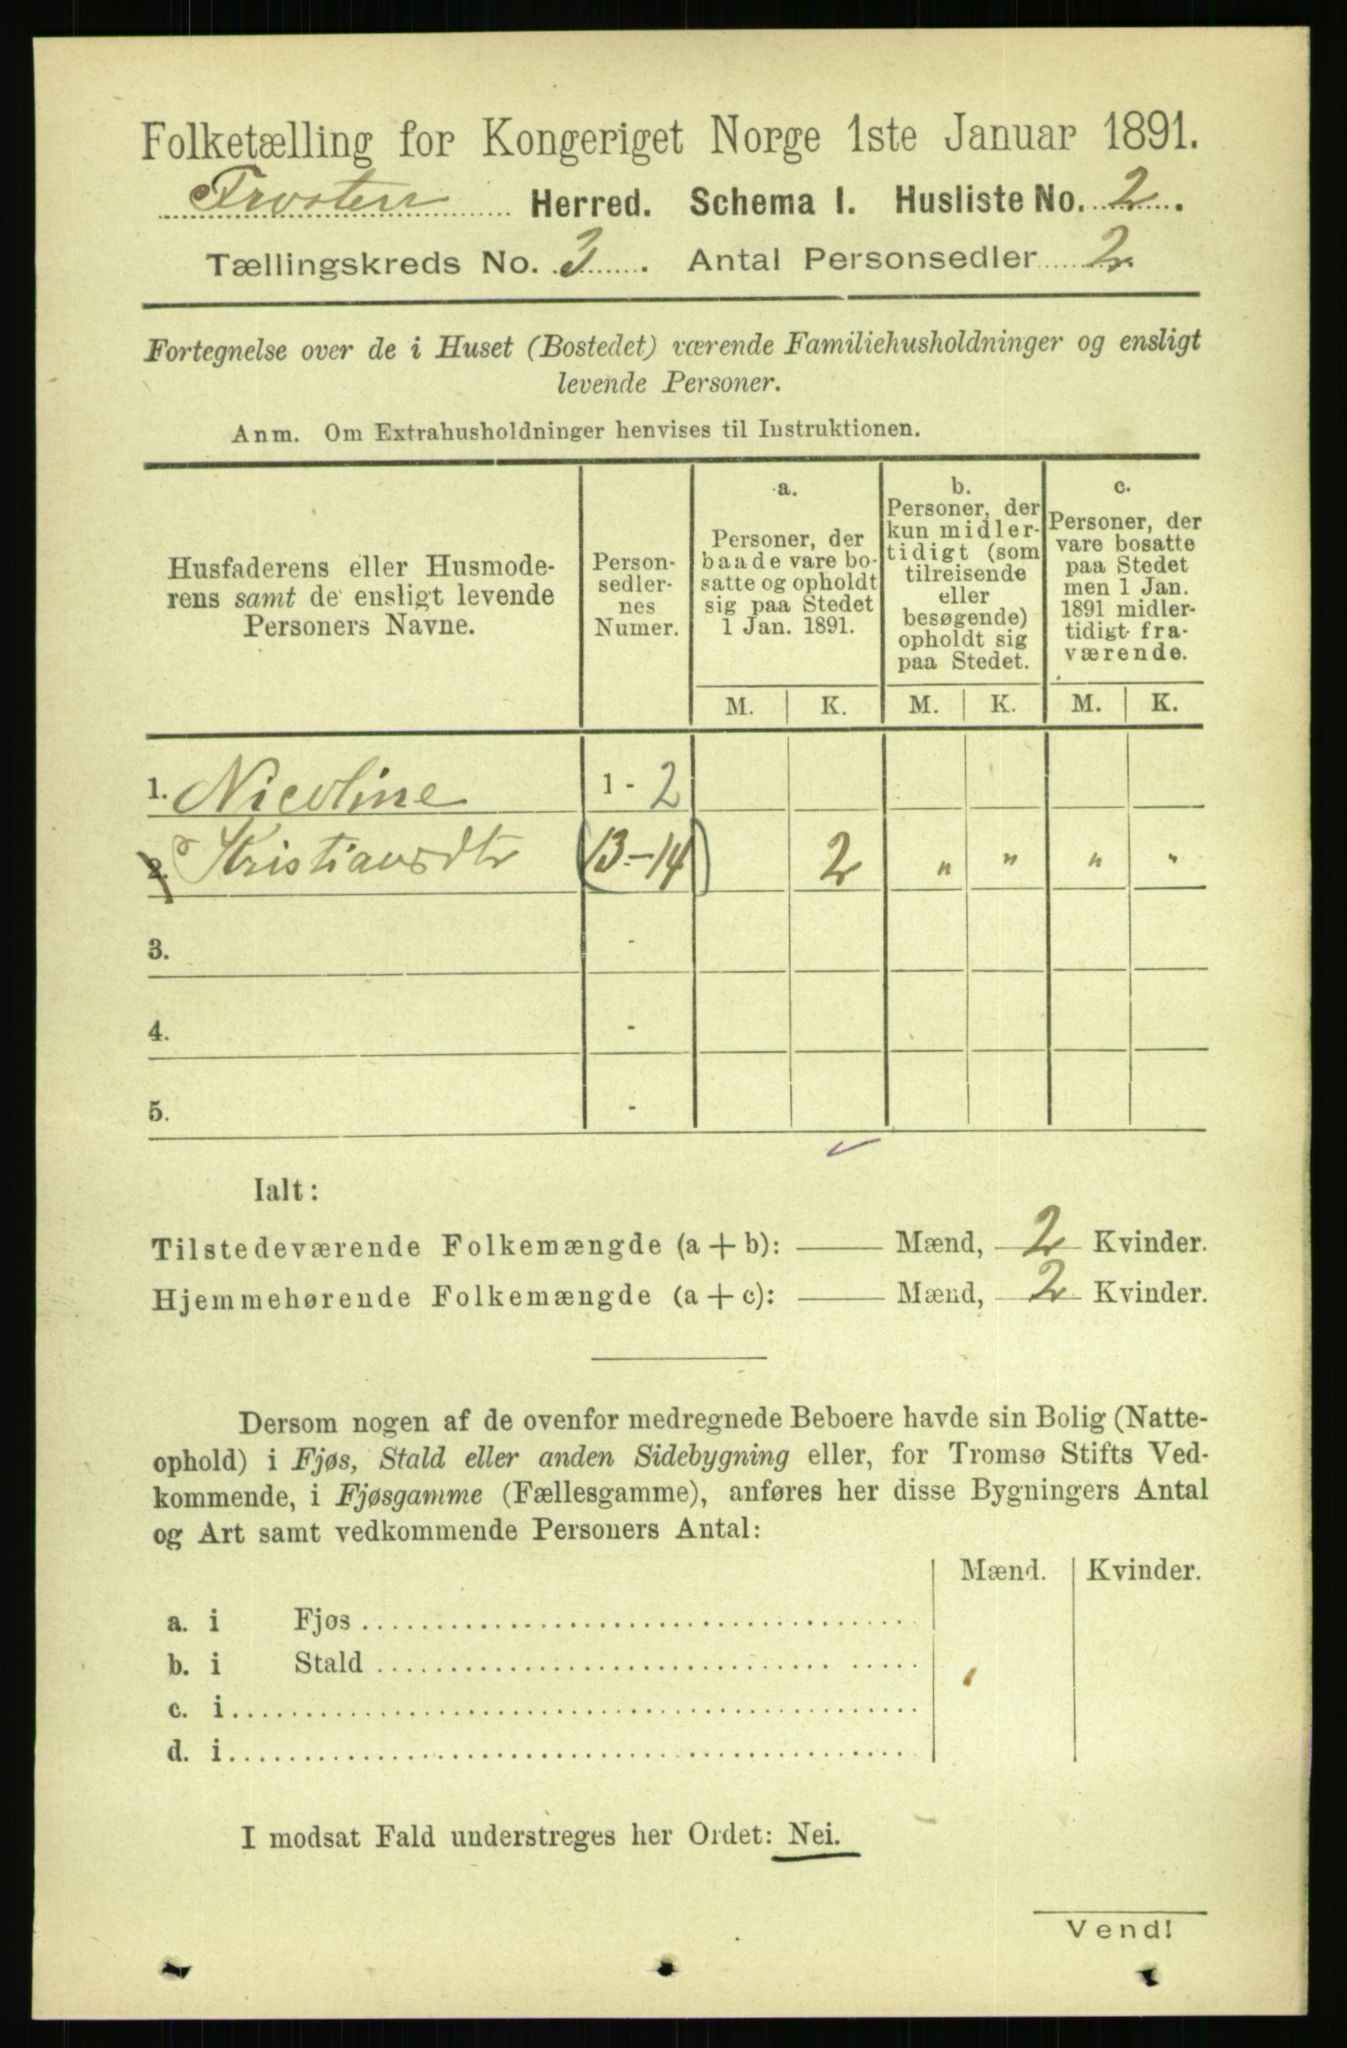 Folketælling for Kongeriget Norge 1ste Januar 1891.
Frosten Herred. Schema I. Husliste No. 2.
Tællingskreds No. 3. Antal Personsedler 2.
Fortegnelse over de i Huset (Bostedet) værende Familiehusholdninger og ensligt
levende Personer.
Anm. Om Extrahusholdninger henvises til Instruktionen.
Husfaderens eller Husmode-
rens samt de ensligt levende
Personers Navne.
Person-
sedler-
nes
Numer.
a.
Personer, der
baade vare bo-
satte og opholdt
sig paa Stedet
1 Jan. 1891.
b.
Personer, der
kun midler-
tidigt (som
tilreisende
eller
besøgende)
opholdt sig
paa Stedet.
c.
Personer, der
vare bosatte
paa Stedet
men 1 Jan.
1891 midler-
tidigt fra-
værende.
M. K. M. K. M. K.
1. Nicoline 1 - 2
2. Kristiansdtr (13-14) 2 " " " "
3. -
4. -
5. -
Ialt:
Tilstedeværende Folkemængde (a + b): — Mænd, 2 Kvinder.
Hjemmehørende Folkemængde (a + c): — Mænd, 2 Kvinder.
Dersom nogen af de ovenfor medregnede Beboere havde sin Bolig (Natte-
ophold) i Fjøs, Stald eller anden Sidebygning eller, for Tromsø Stifts Ved-
kommende, i Fjøsgamme (Fællesgamme), anføres her disse Bygningers Antal
og Art samt vedkommende Personers Antal:
Mænd. Kvinder.
a. i Fjøs
b. i Stald
c. i
d. i
I modsat Fald understreges her Ordet: Nei.
Vend!